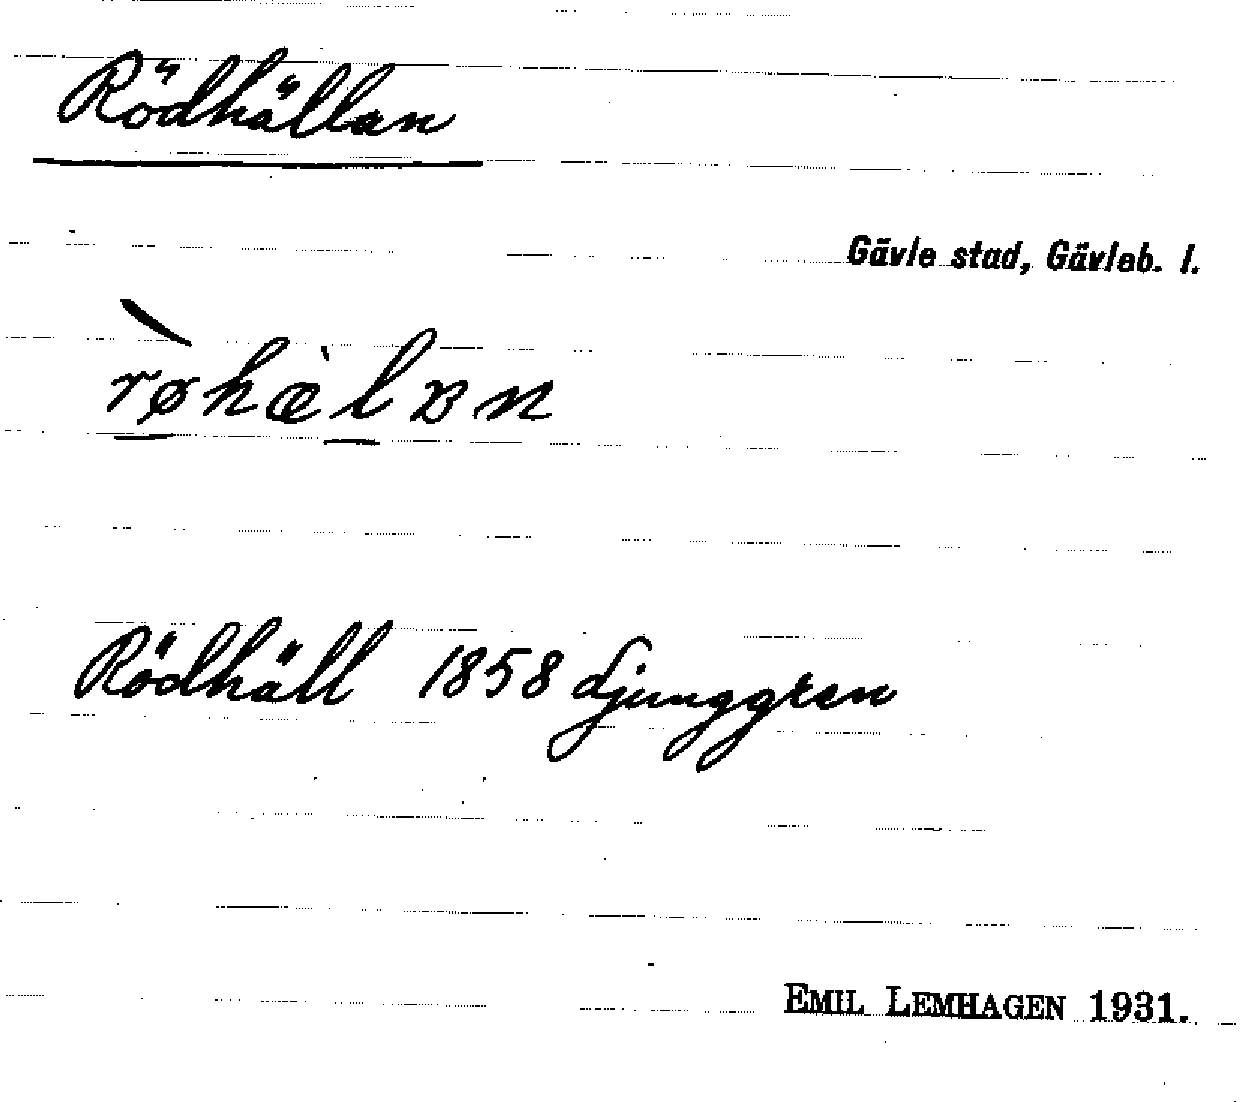 Rödhällan
Gävle stad, Gävleb. l.
røhæ̀lɐn
Rödhäll 1858 Ljunggren
EMIL LEMHAGEN 1931.